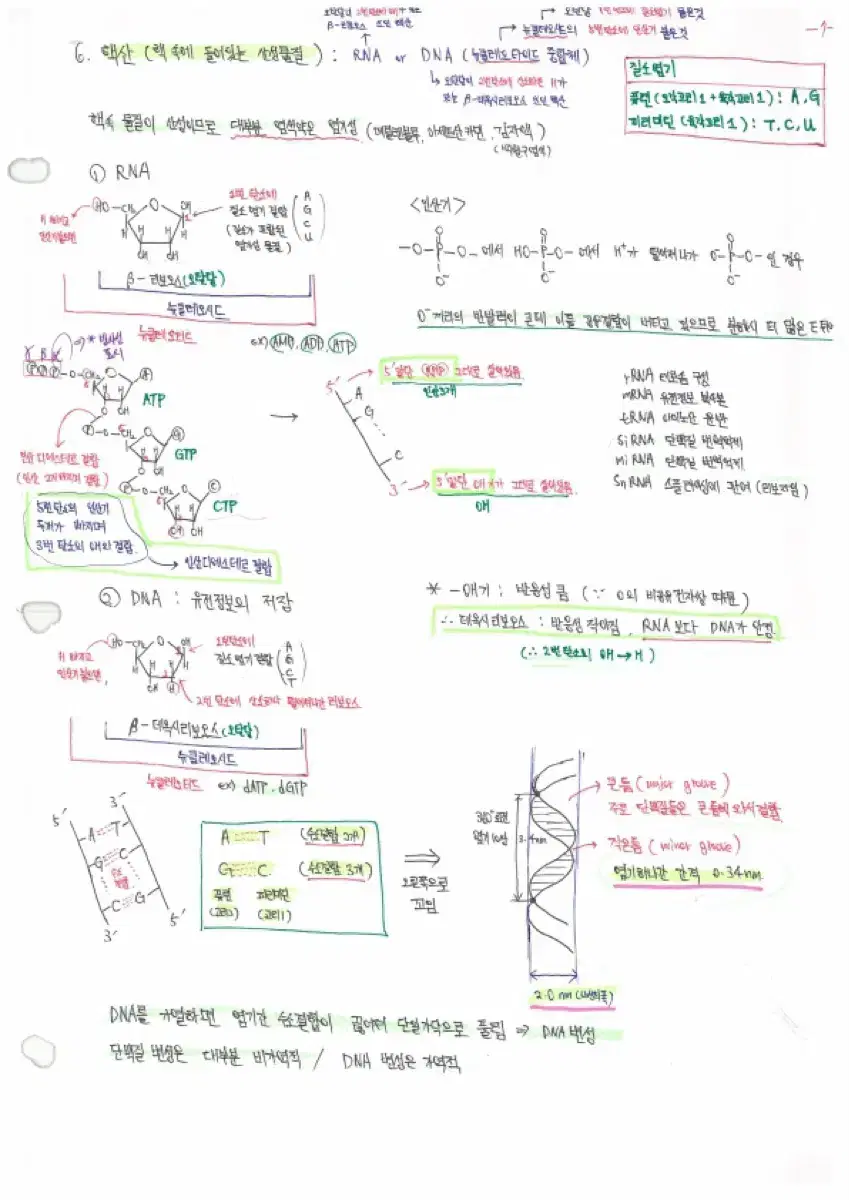 -1-
6. 핵산 (핵 속에 들어있는 산성물질) : RNA or DNA (뉴클레오타이드 중합체)
β-리보오스
질소염기
퓨린 (오각고리 1 + 육각고리 1) : A, G
피리미딘 (육각고리 1) : T, C, U
핵속 물질이 산성이므로 대부분 염색약은 염기성 (메틸렌블루, 아세트산카민, 김자액)
① RNA
HO-CH₂
O
OH
H
H
OH
OH
1번 탄소에
질소 염기 결합
(질소가 포함된
염기성 물질)
A
G
C
U
β-리보오스 (오탄당)
뉴클레오시드
뉴클레오티드
ex) AMP, ADP, ATP
<인산기>
-O-P-O- 에서 HO-P-O- 에서 H⁺가 떨어져나가 O⁻-P-O- 인 경우
O⁻끼리의 반발력이 큰데 이를 공유결합이 버티고 있으므로 분해시 더 많은 E 방출
* 방사성
표시
ATP
GTP
CTP
인산 디에스테르 결합
5번 탄소의 인산기
두개가 빠지며
3번 탄소의 OH와 결합
→ 인산디에스테르 결합
5′
A
G
C
3′
5′말단 그대로 살아있음
인산3개
3′말단 OH가 그대로 살아있음
OH
rRNA 리보솜 구성
mRNA 유전정보 복사본
tRNA 아미노산 운반
SiRNA 단백질 번역억제
MiRNA 단백질 번역억제
SnRNA 스플라이싱에 관여 (리보자임)
② DNA : 유전정보의 저장
* -OH기 : 반응성 큼 (∵ O의 비공유전자쌍 때문)
∴ 데옥시리보오스 : 반응성 작아짐, RNA보다 DNA가 안정
(∵ 2번탄소의 OH → H)
HO-CH₂
O
OH
H 빠지고
인산기 붙으면,
1번탄소에
질소염기 결합
A
G
C
T
2번 탄소에 산소하나 떨어져나간 리보오스
β-데옥시리보오스 (오탄당)
뉴클레오시드
뉴클레오티드 ex) dATP, dGTP
5′
3′
A T
G C
수소
결합
C G
3′
5′
A T (수소결합 2개)
G C (수소결합 3개)
퓨린 피리미딘
(고리2) (고리1)
⇒
오른쪽으로
꼬임
360°회전
염기 10쌍
3.4nm
큰홈 (major groove)
주로 단백질들은 큰홈에 와서 결합
작은홈 (minor groove)
염기하나간 간격 0.34nm
2.0 nm
DNA를 가열하면 염기간 수소결합이 끊어져 단일가닥으로 풀림 ⇒ DNA 변성
단백질 변성은 대부분 비가역적 / DNA 변성은 가역적